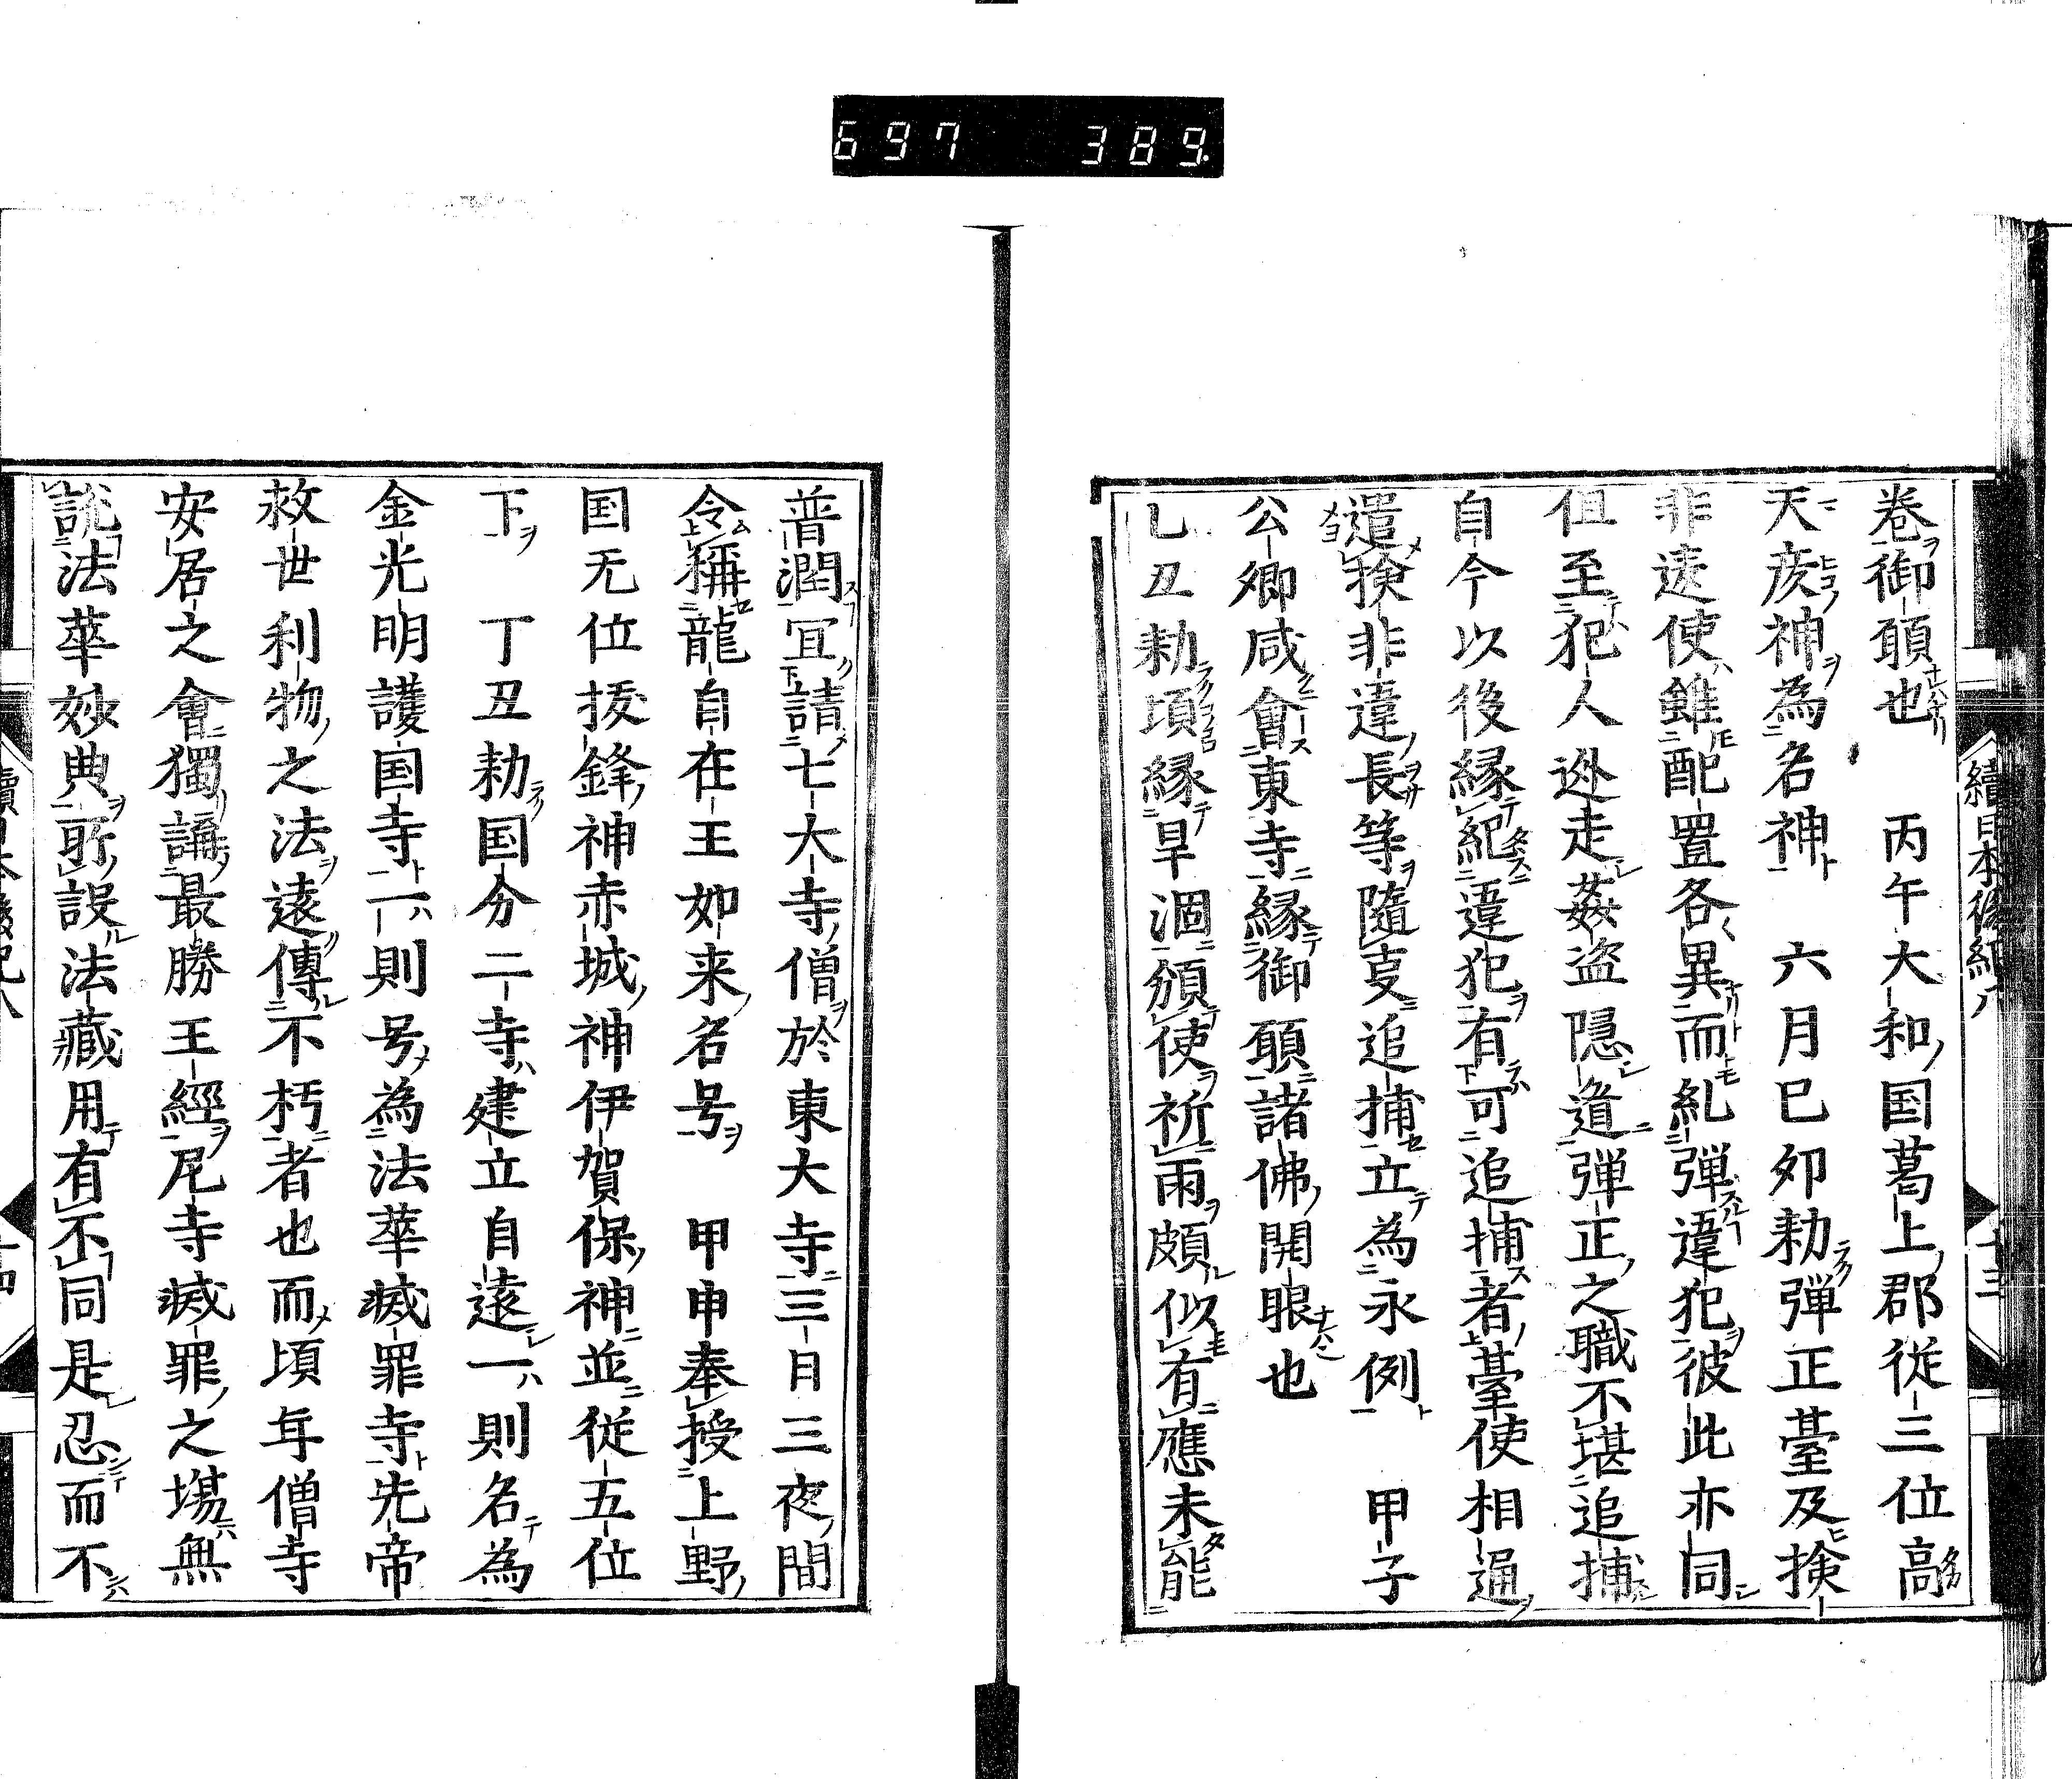 697 389.
續日本後紀八 十三
卷御願也 丙午大和国葛上郡従三位高
天彦神為名神 六月已夘勑弾正臺及検
非違使雖配置各異而糺弾違犯彼此亦同
但至犯人迯走姦盗隠遁弾正之職不堪追捕
自今以後縁紀違犯有可追捕者臺使相通
遣検非違長等隨㕝追捕立為永例 甲子
公卿咸會東寺縁御願諸佛開眼也
乚丑勑頃縁旱涸頒使祈雨頗似有應未能
普潤冝請七大寺僧於東大寺三日三夜間
令稱龍自在王如来名号 甲申奉授上野
国无位抜鋒神赤城神伊賀保神並従五位
下 丁丑勑国分二寺建立自遠一則名為
金光明護国寺一則号為法華滅罪寺先帝
救世利物之法遠傳不朽者也而頃年僧寺
安居之會獨講最勝王經尼寺滅罪之場無
説法華妙典所設法藏用有不同是忍而不